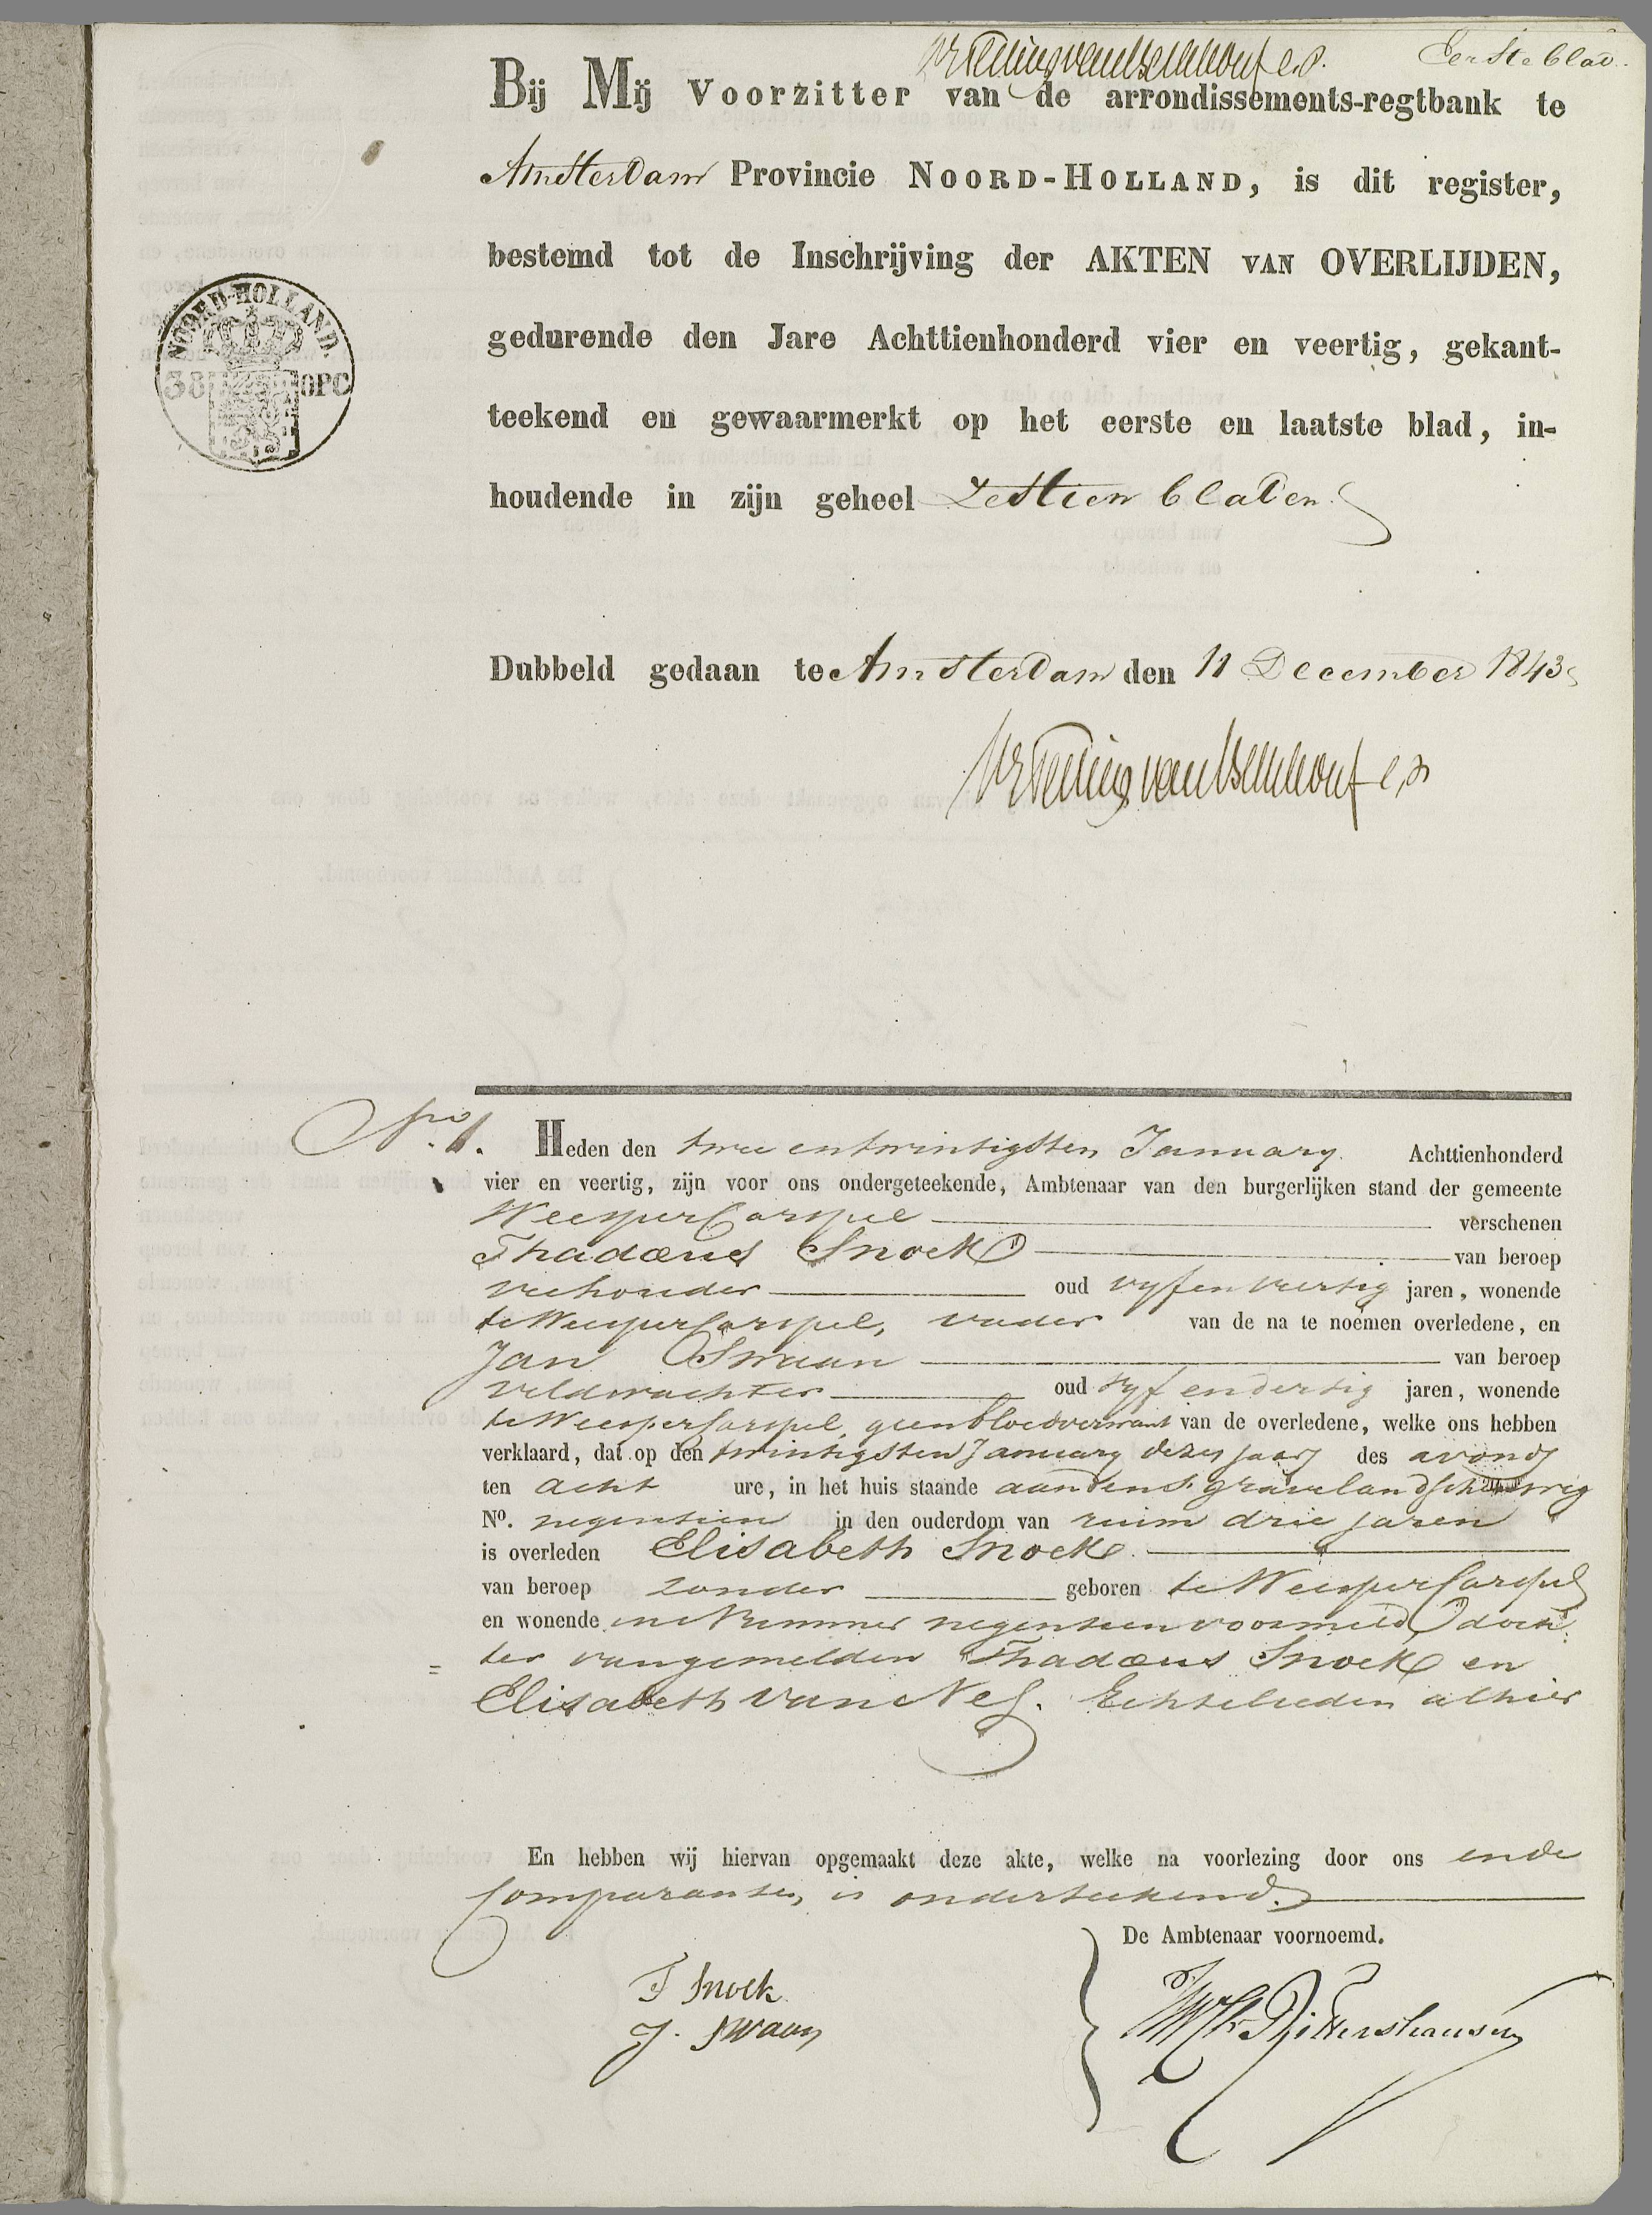 Eerste blad.
Bij Mij Voorzitter van de arrondissements-regtbank te
Amsterdam Provincie NOORD-HOLLAND, is dit register,
bestemd tot de Inschrijving der AKTEN VAN OVERLIJDEN,
gedurende den Jare Achttienhonderd vier en veertig, gekant-
teekend en gewaarmerkt op het eerste en laatste blad, in-
houdende in zijn geheel zestien bladen.
NOORD-HOLLAND.
38 OPC
Dubbeld gedaan te Amsterdam den 11 December 1843
No. 1. Heden den twee entwintigsten January Achttienhonderd
vier en veertig, zijn voor ons ondergeteekende, Ambtenaar van den burgerlijken stand der gemeente
WeesperCarspel verschenen
Thadæus Snoek van beroep
veehouder oud vyfenveertig jaren, wonende
te WeesperCarspel, vader van de na te noemen overledene, en
Jan Swaan van beroep
veldwachter oud vyf endertig jaren, wonende
te WeesperCarspel, geen bloedverwant van de overledene, welke ons hebben
verklaard, dat op den twintigsten January dezes jaars des avonds
ten acht ure, in het huis staande aanden s'gravelandscheweg
No. negentien in den ouderdom van ruim drie jaren
is overleden Elisabeth Snoek
van beroep zonder geboren te WeesperCarspel
en wonende in Nummer negentien voormeld, doch
= ter vangemelden Thadæus Snoek en
Elisabeth van Nes. Echtelieden alhier
En hebben wij hiervan opgemaakt deze akte, welke na voorlezing door ons ende
Comparanten, is onderteekend.
De Ambtenaar voornoemd.
T Snoek
J. Swaan